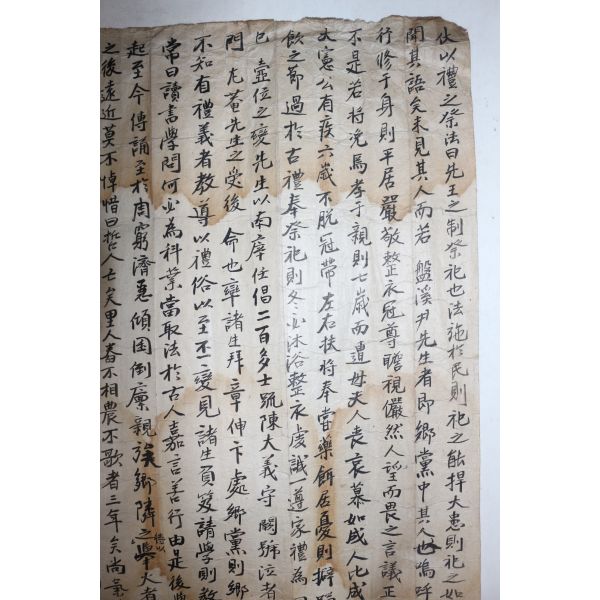 伏以禮之祭法曰先王之制祭祀也法施於民則祀之能捍大患則祀之如
聞其語矣未見其人而若 盤溪尹先生者即鄕黨中其人也嗚呼
行修于身則平居嚴敬整衣冠尊瞻視儼然人望而畏之言議正
不是若將浼焉孝于親則七歲而遭母夫人喪哀慕如成人比成
大憲公有疾六歲不脫冠帶左右扶將奉嘗藥餌居憂則擗踊
飮之節過於古禮奉祭祀則冬必沐浴整衣虔誠一遵家禮爲
巳 壼位之變先生以南庠任倡二百多士䟽陳大義守闕號泣者
門尤菴先生之受後 命也率諸生拜章伸卞處鄕黨則鄕
不知有禮義者敎導以禮俗以至不一變見諸生負笈請學則敎
常曰讀書學問何必爲科業當取法於古人嘉言善行由是後
起至今傳誦至於周窮濟急傾囷倒廩親族鄕隣之待以擧火者
之後遠近莫不悼惜曰哲人亡矣里舂不相農不歌者三年矣尚